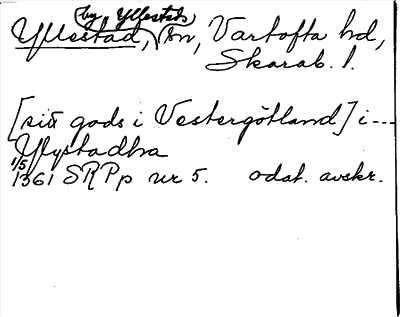 (by Yllestad)
Yllestad, sn, Vartofta hd,
Skarab. l.
[sitt gods i Vestergötland] i ---
Ylystadha
1/5
1361 SRPp nr 5. odat. avskr.